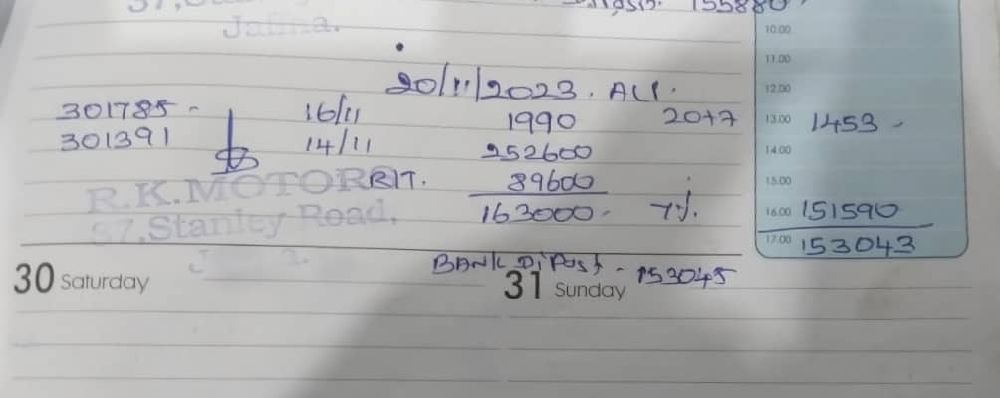 155880
Jaffna.
10.00
11.00
20/11/2023. ALI. 12.00
301785 - 16/11 1990 20+7 13.00 1453 -
301391 14/11 252600 14.00
R.K.MOTOR RIT. 89600 15.00
37,Stanley Road, 163000 - 7%. 16.00 151590
17.00 153043
BANK DiPost - 153045
30 Saturday 31 Sunday